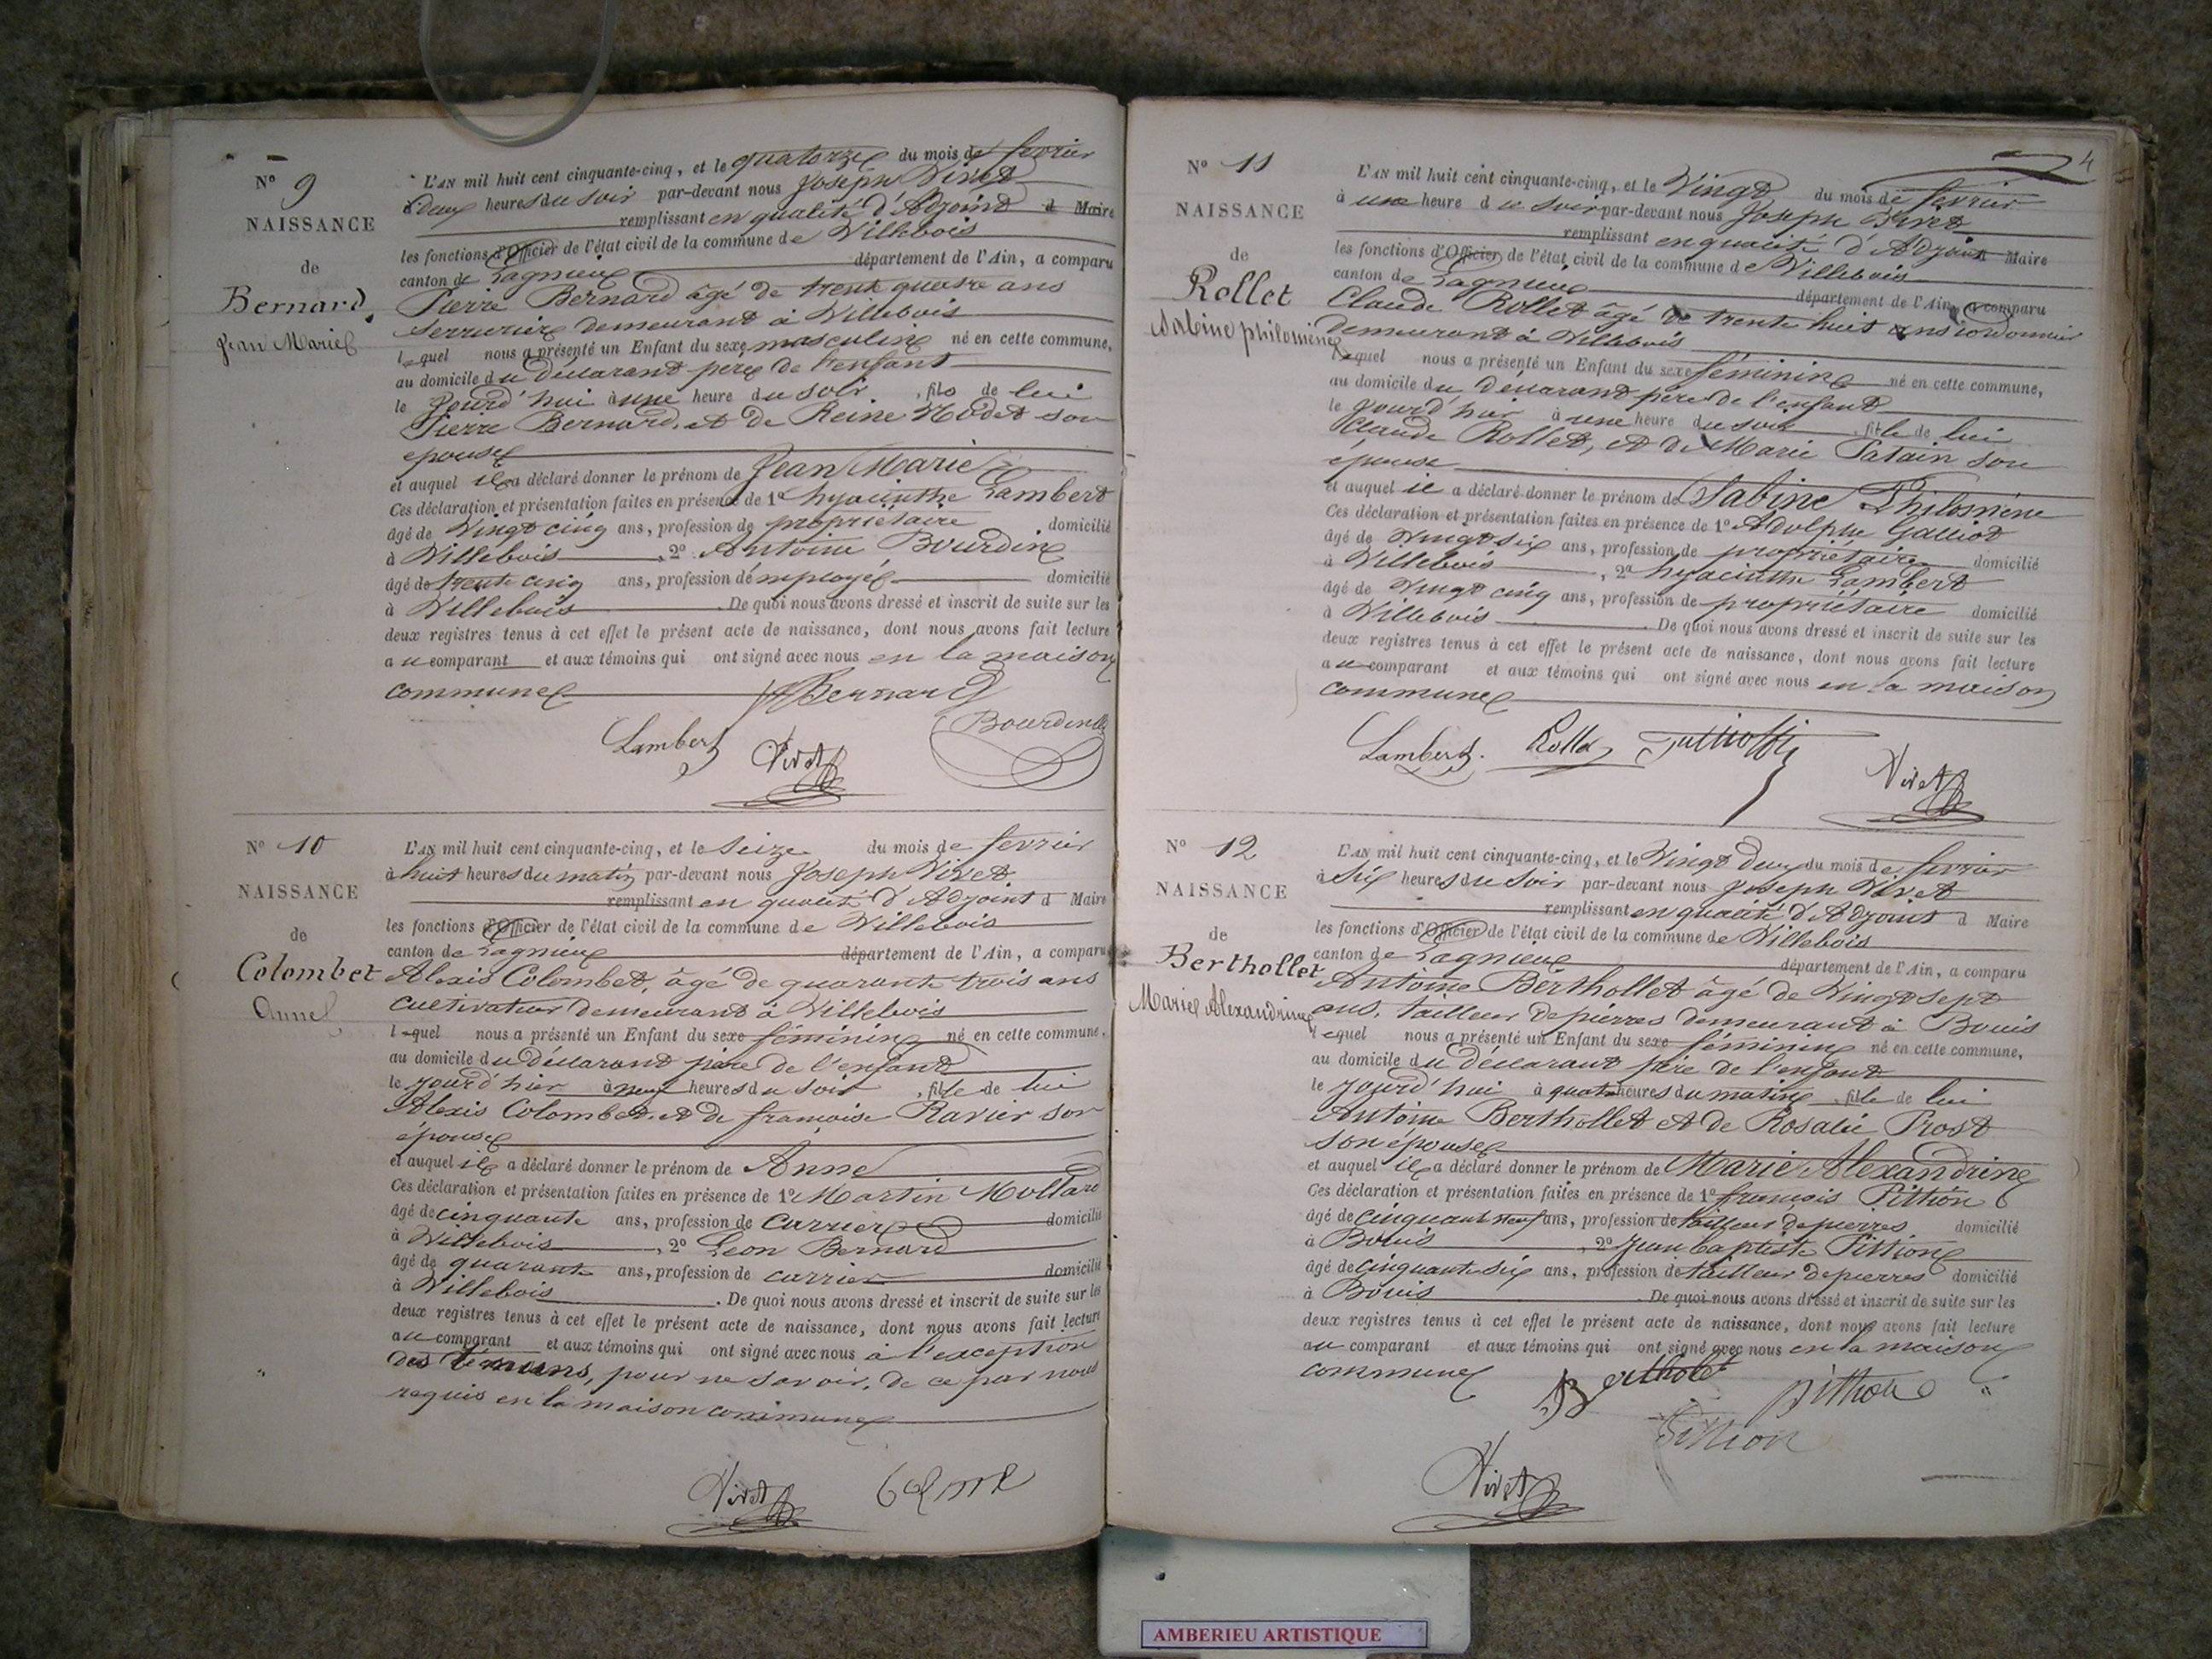 N° 9
NAISSANCE
de
Bernard
Jean Marie
L'AN mil huit cent cinquante-cinq, et le quatorze du mois de fevrier
à deux heures du soir par-devant nous Joseph Vivet
remplissant en qualité d'Adjoint d Maire
les fonctions d'Officier de l'état civil de la commune de Villebois
canton de Lagnieux département de l'Ain, a comparu
Pierre Bernard âgé de trente quatre ans
serrurier demeurant à Villebois
lequel nous a présenté un Enfant du sexe masculin né en cette commune,
au domicile du déclarant père de l'enfant
le jourd'hui à une heure du soir, fils de lui
Pierre Bernard, et de Reine Nodet son
epouse
et auquel il a déclaré donner le prénom de Jean Marie
Ces déclaration et présentation faites en présence de 1° hyacinthe Lambert
âgé de Vingt cinq ans, profession de propriétaire domicilié
à Villebois, 2° Antoine Bourdin
âgé de trente cinq ans, profession d'employé domicilié
à Villebois. De quoi nous avons dressé et inscrit de suite sur les
deux registres tenus à cet effet le présent acte de naissance, dont nous avons fait lecture
au comparant et aux témoins qui ont signé avec nous en la maison
commune
Bernard
Lambert Vivet Bourdin
N° 10
NAISSANCE
de
Colombet
Anne
L'AN mil huit cent cinquante-cinq, et le Seize du mois de fevrier
à huit heures du matin par-devant nous Joseph Vivet
remplissant en qualité d'Adjoint d Maire
les fonctions d'Officier de l'état civil de la commune de Villebois
canton de Lagnieux département de l'Ain, a comparu
Alexis Colombet, âgé de quarante trois ans
cultivateur demeurant à Villebois
lequel nous a présenté un Enfant du sexe féminin né en cette commune,
au domicile du déclarant père de l'enfant
le jourd'hier à neuf heures du soir, fille de lui
Alexis Colombet, et de françoise Ravier son
épouse
et auquel il a déclaré donner le prénom de Anne
Ces déclaration et présentation faites en présence de 1° Martin Mollard
âgé de cinquante ans, profession de carrier domicilié
à Villebois, 2° Leon Bernard
âgé de quarante ans, profession de carrier domicilié
à Villebois. De quoi nous avons dressé et inscrit de suite sur les
deux registres tenus à cet effet le présent acte de naissance, dont nous avons fait lecture
au comparant et aux témoins qui ont signé avec nous à l'exception
des témoins, pour ne savoir, de ce par nous
requis en la maison commune
Vivet
4
N° 11
NAISSANCE
de
Rollet
Sabine philomène
L'AN mil huit cent cinquante-cinq, et le Vingt du mois de fevrier
à une heure du soir par-devant nous Joseph Vivet
remplissant en qualité d'Adjoint Maire
les fonctions d'Officier de l'état civil de la commune de Villebois
canton de Lagnieux département de l'Ain, a comparu
Claude Rollet âgé de trente huit ans cordonnier
demeurant à Villebois
lequel nous a présenté un Enfant du sexe féminin né en cette commune,
au domicile du déclarant père de l'enfant
le jourd'hui à une heure du soir fille de lui
Claude Rollet, et de Marie Patain son
épouse
et auquel il a déclaré donner le prénom de Sabine Philomène
Ces déclaration et présentation faites en présence de 1° Adolphe Galliot
âgé de Vingt six ans, profession de propriétaire domicilié
à Villebois, 2° hyacinthe Lambert
âgé de Vingt cinq ans, profession de propriétaire domicilié
à Villebois. De quoi nous avons dressé et inscrit de suite sur les
deux registres tenus à cet effet le présent acte de naissance, dont nous avons fait lecture
au comparant et aux témoins qui ont signé avec nous en la maison
commune
Lambert. Rollet Vivet
N° 12
NAISSANCE
de
Berthollet
Marie Alexandrine
L'AN mil huit cent cinquante-cinq, et le Vingt deux du mois de fevrier
à six heures du soir par-devant nous Joseph Vivet
remplissant en qualité d'Adjoint d Maire
les fonctions d'Officier de l'état civil de la commune de Villebois
canton de Lagnieux département de l'Ain, a comparu
Antoine Berthollet âgé de Vingt sept
ans, tailleur de pierres demeurant à Bouis
lequel nous a présenté un Enfant du sexe féminin né en cette commune,
au domicile du déclarant père de l'enfant
le jourd'hui à quatre heures du matin, fille de lui
Antoine Berthollet et de Rosalie Prost
son épouse
et auquel il a déclaré donner le prénom de Marie Alexandrine
Ces déclaration et présentation faites en présence de 1° françois Pittion
âgé de cinquante neuf ans, profession de tailleur de pierres domicilié
à Bouis, 2° Jean baptiste Pittion
âgé de cinquante six ans, profession de tailleur de pierres domicilié
à Bouis. De quoi nous avons dressé et inscrit de suite sur les
deux registres tenus à cet effet le présent acte de naissance, dont nous avons fait lecture
au comparant et aux témoins qui ont signé avec nous en la maison
commune
Bertholet pithion
Pittion
Vivet
AMBERIEU ARTISTIQUE